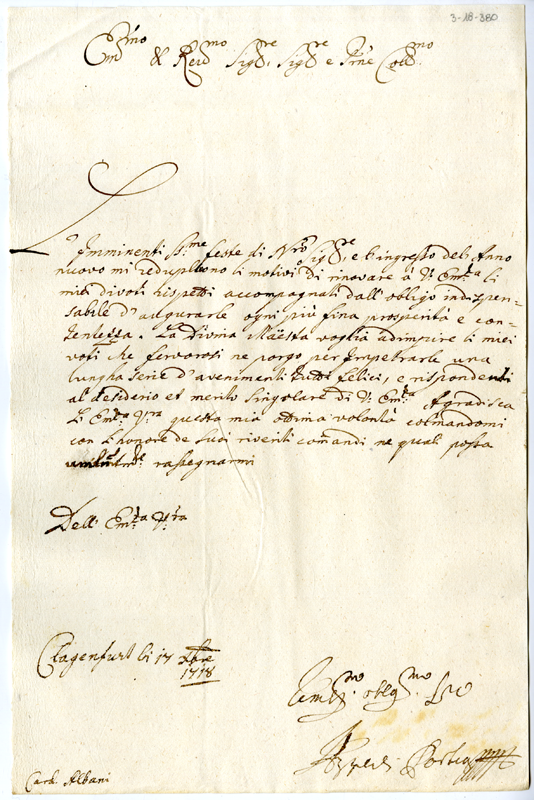 3-18-380
Em.mo & Reu.mo Sig.re, Sig.re e Prne Coll.mo
L'Imminenti S.me feste di N.ro Sig.re, e l'ingresso dell'Anno
nuovo mi redupliono li motivi di rinovare à V. Em.za li
miei divoti rispetti accompagnati dall'obligo indispen-
sabile d'augurarle ogni più fina prosperità e con-
tentezza. La Divina Maestà voglia adimpire li miei
voti che fervorosi ne porgo per impetrarle una
lungha serie d'avenimenti tutti felici, e rispondenti
al desiderio et merito singolare di V. Em.za Agradisca
L'Em.za V.ra questa mia ottima volontà colmandomi
con l'honore de suoi riveriti comandi ne quali possa
rassegnarmi
Dell'Em.za V.ra
Clagenfurt li 17 Xbre
1718
obblig.mo
Porzia
Card. Albani